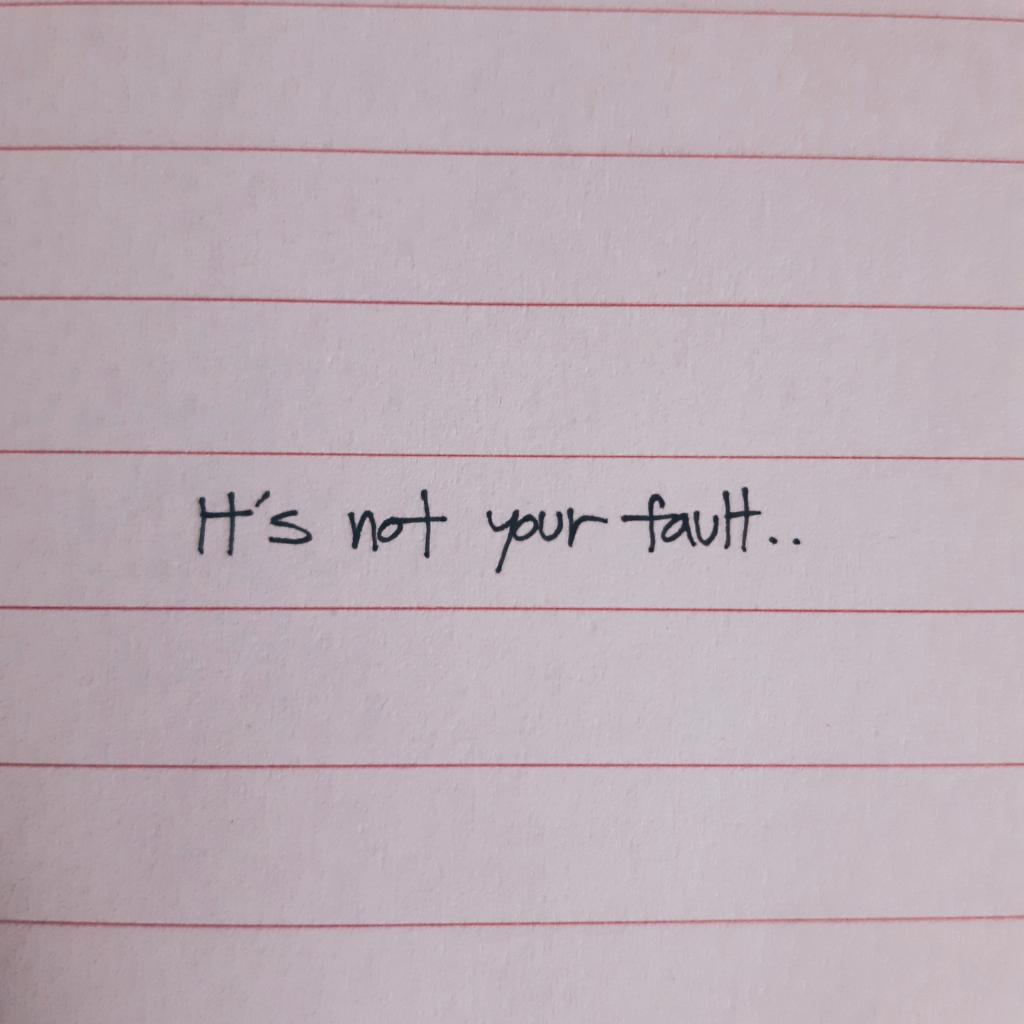 It's not your fault..